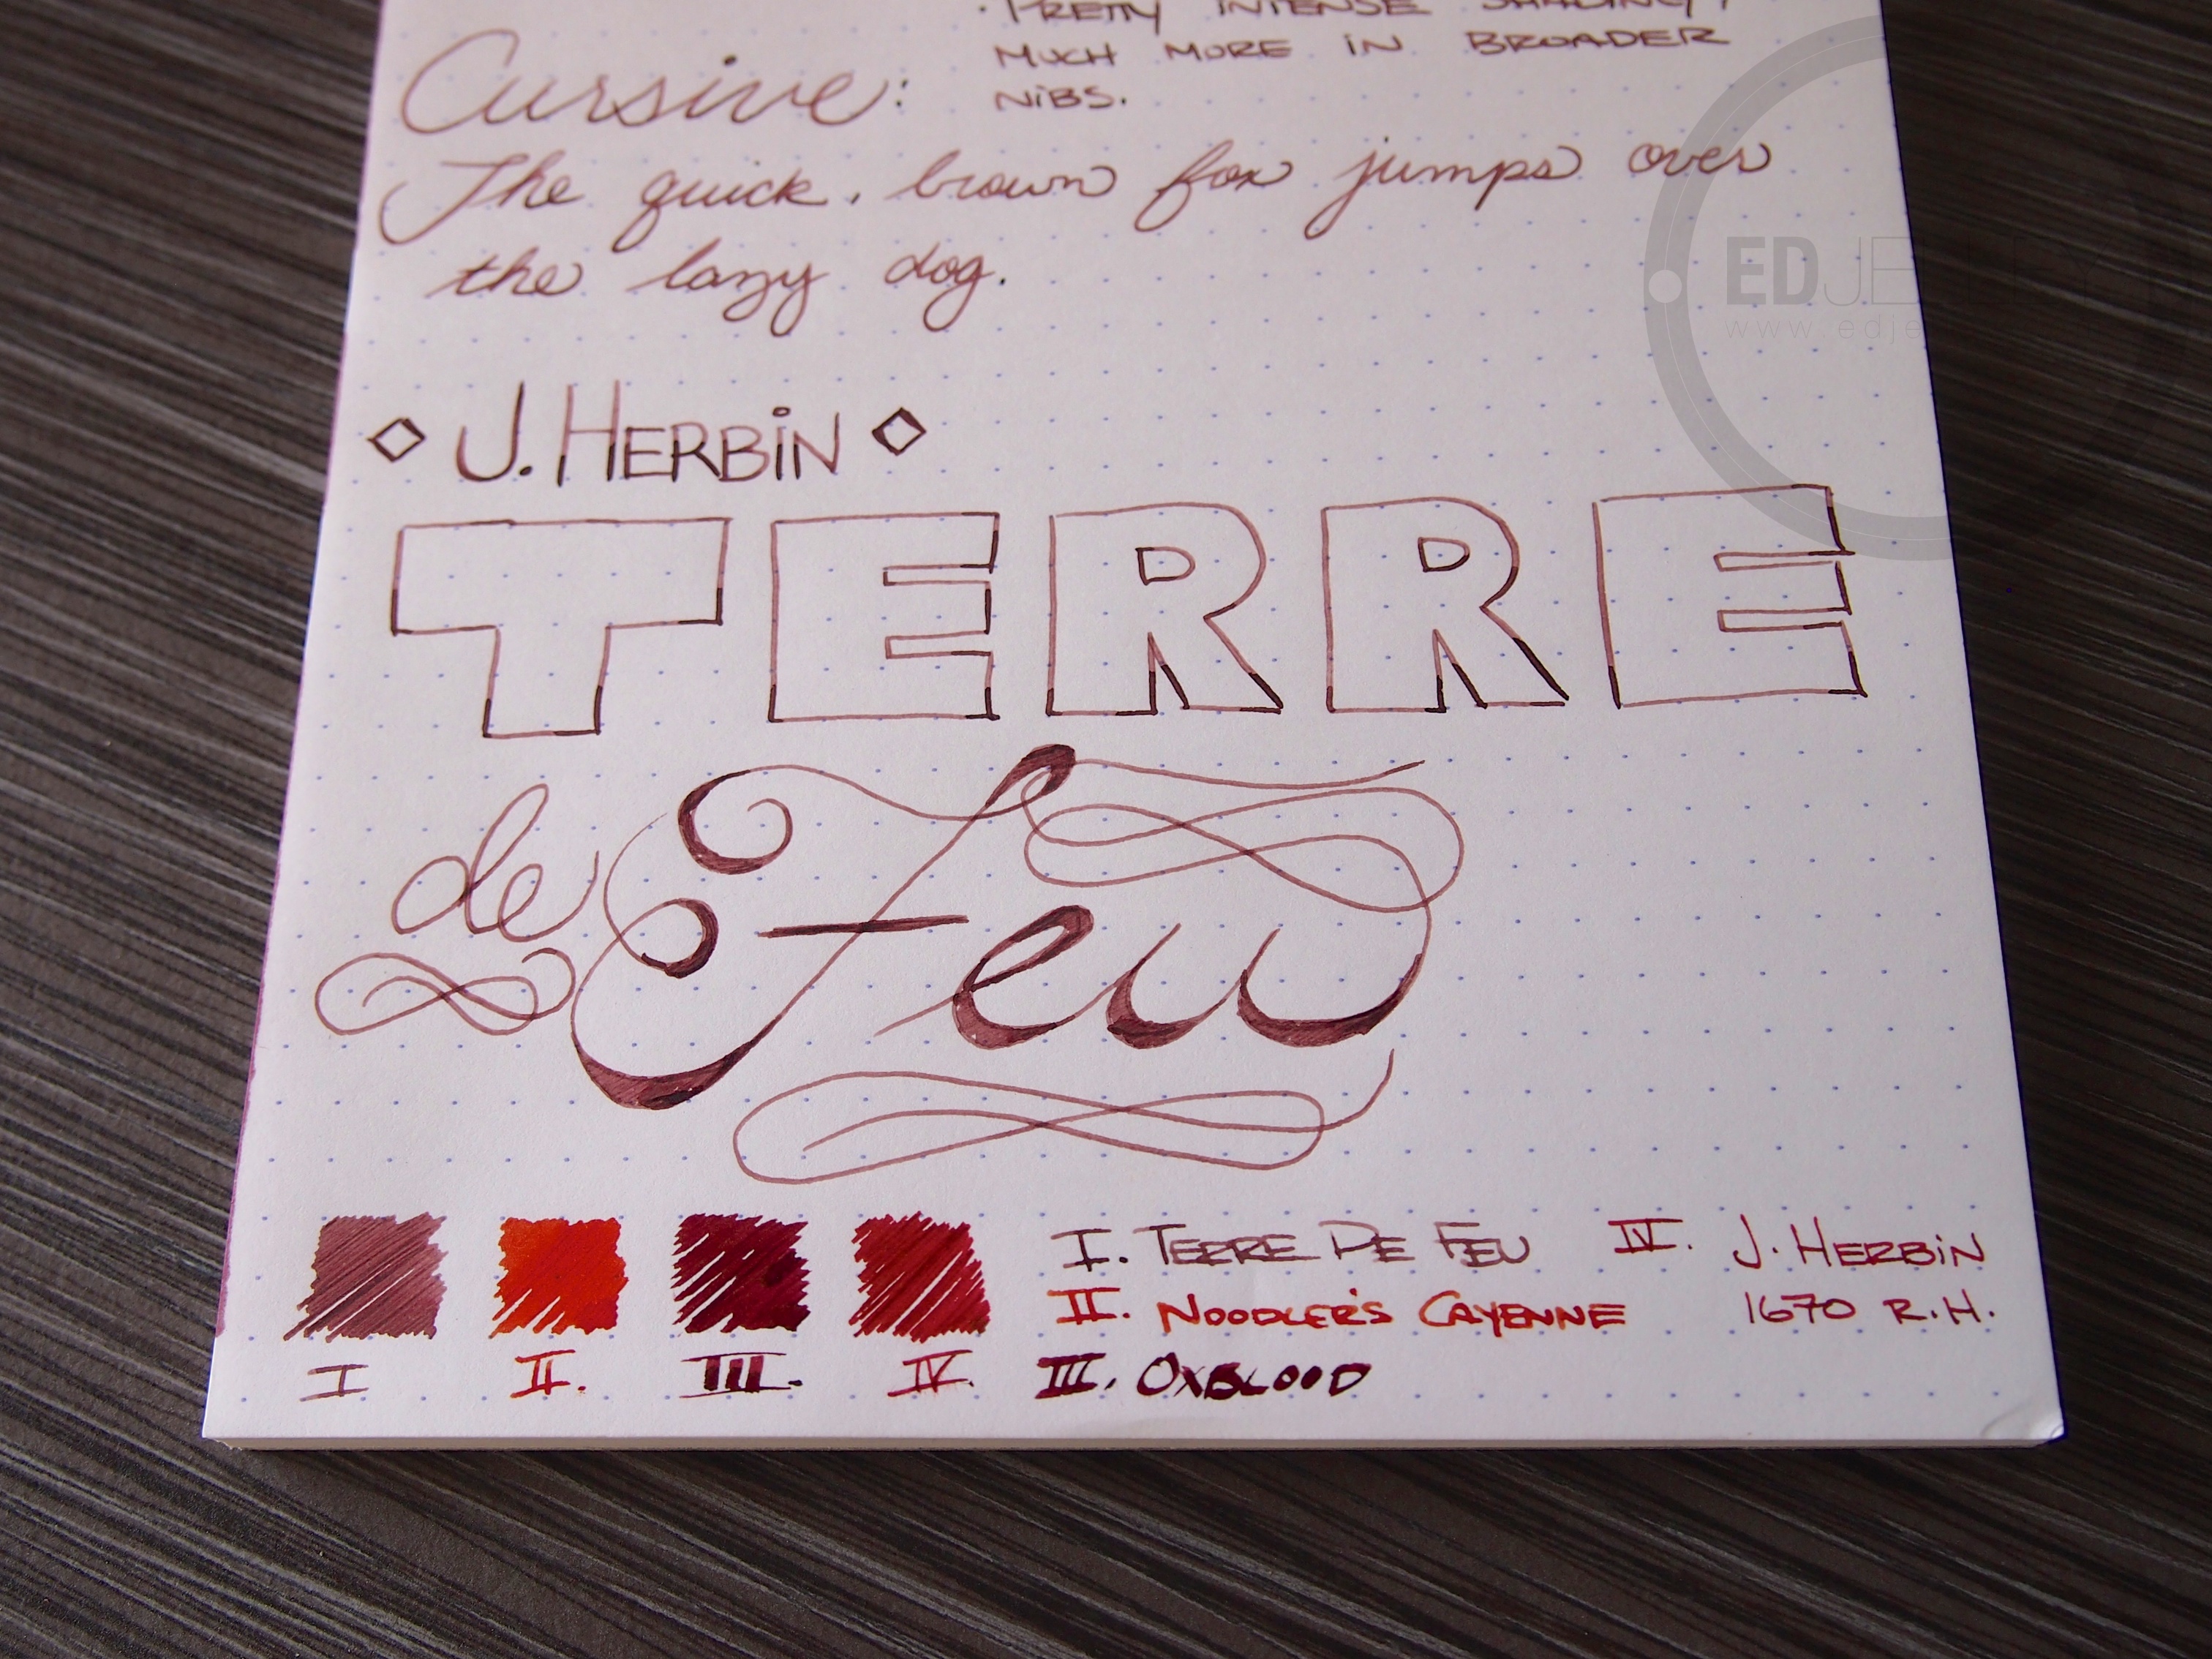 · PRETTY INTENSE SHADING,
MUCH MORE IN BROADER
NIBS.
Cursive:
The quick brown fox jumps over
the lazy dog.
J. HERBIN
TERRE
de Feu
I II. III. IV.
I. TERRE DE FEU
II. NOODLER'S CAYENNE
III. OXBLOOD
IV. J. HERBIN
1670 R.H.
EDJELLEY
www.edje